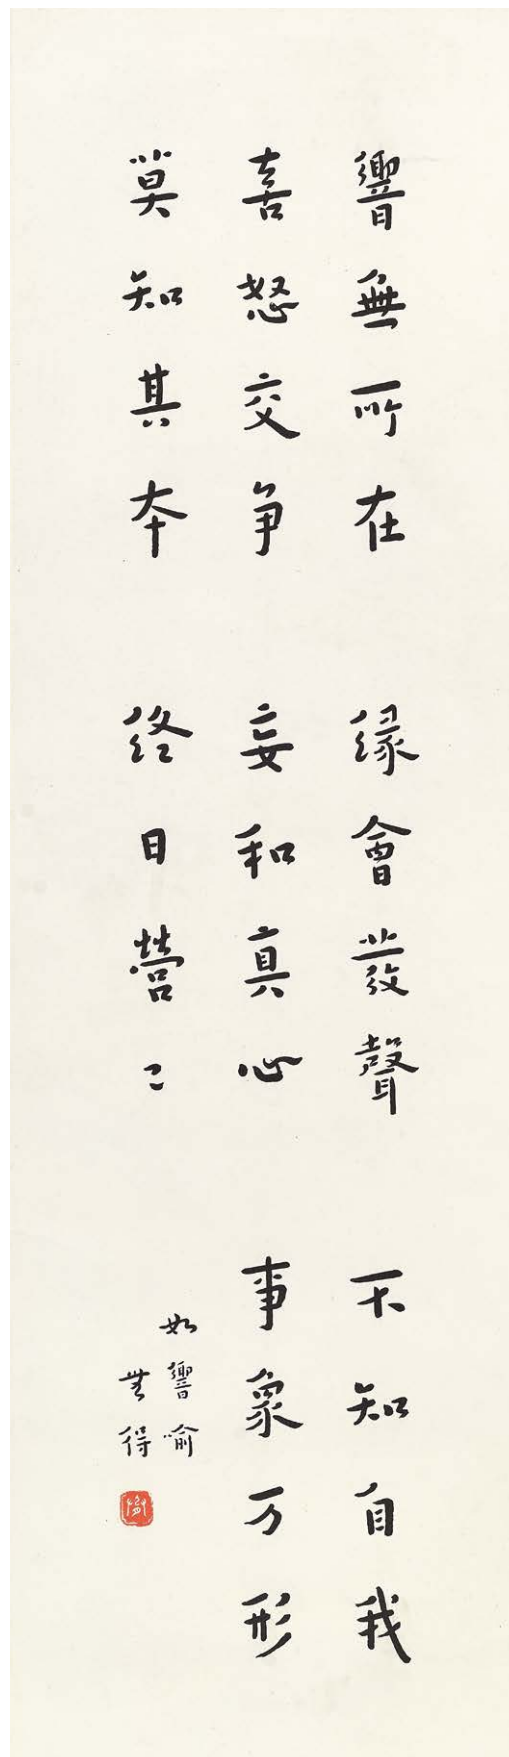 響無所在 緣會發聲 不知自我
喜怒交爭 妄和真心 事象万形
莫知其本 終日營〻
如響喻
無得